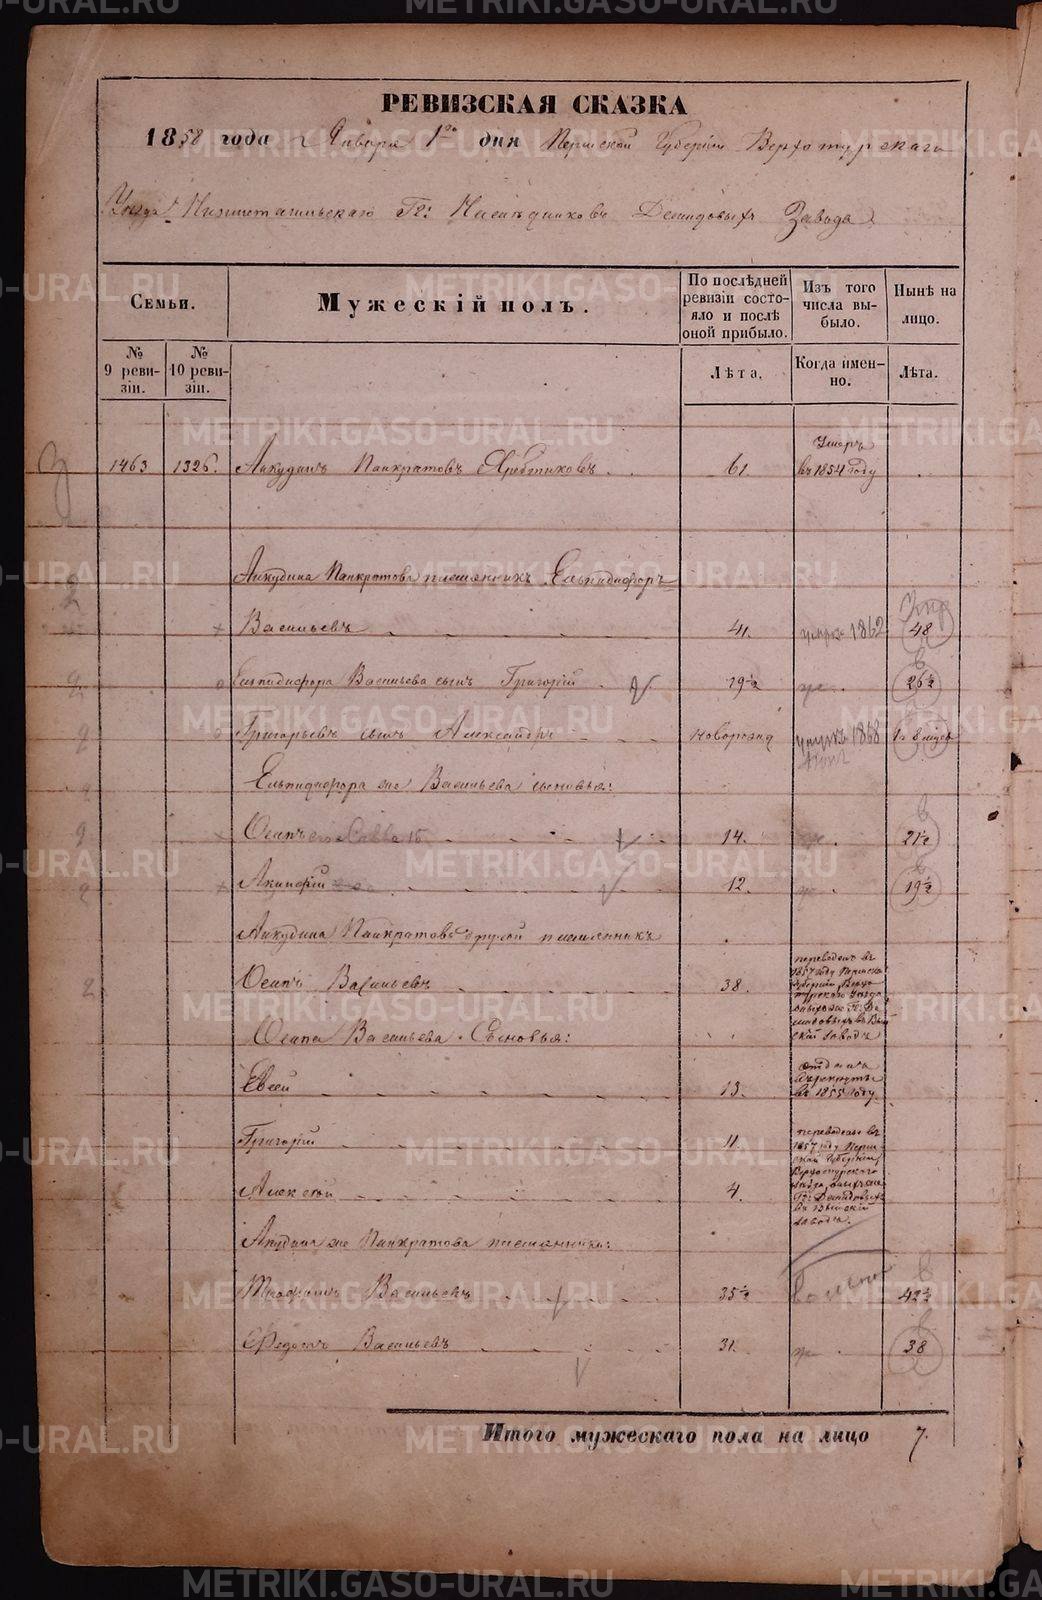 РЕВИЗСКАЯ СКАЗКА
1858 года Января 1го дня Пермской Губернiи Верхотурскаго
Уезда Нижнетагильскаго Гг: Наследниковъ Демидовыхъ Завода
Семьи.
Мужескiй полъ.
По послѣдней ревизiи состояло и послѣ оной прибыло.
Изъ того числа выбыло.
Нынѣ на лицо.
№ 9 ревизiи.
№ 10 ревизiи.
Лѣта.
Когда именно.
Лѣта.
1463 1326. Анкудинъ Панкратовъ 61. Умеръ въ 1854 году
Анкудина Панкратова племянникъ Елпидифоръ
Васильевъ 41. 1862 48
Елпидифора Васильева сынъ Григорiй 19½ 26½
Григорьевъ сынъ Александръ новорожд 1868
Елпидифора же Васильева сыновья:
Осипъ 14. 21½
Акинфiй 12. 19½
Анкудина Панкратова другой племянникъ
Осипъ Васильевъ 38. переведенъ въ 1857 году Пермской Губернiи Верхотурскаго Уезда
Осипа Васильева Сыновья:
Евсей 13. отданъ въ рекруты въ 1855 году.
Григорiй 11. переведены въ 1857 году Пермской Губернiи, Верхотурскаго Уезда
Алексей 4.
Анкудина же Панкратова племянники:
Васильевъ 35½ 42½
Федотъ Васильевъ 31. 38
Итого мужескаго пола на лицо 7.
METRIKI.GASO-URAL.RU